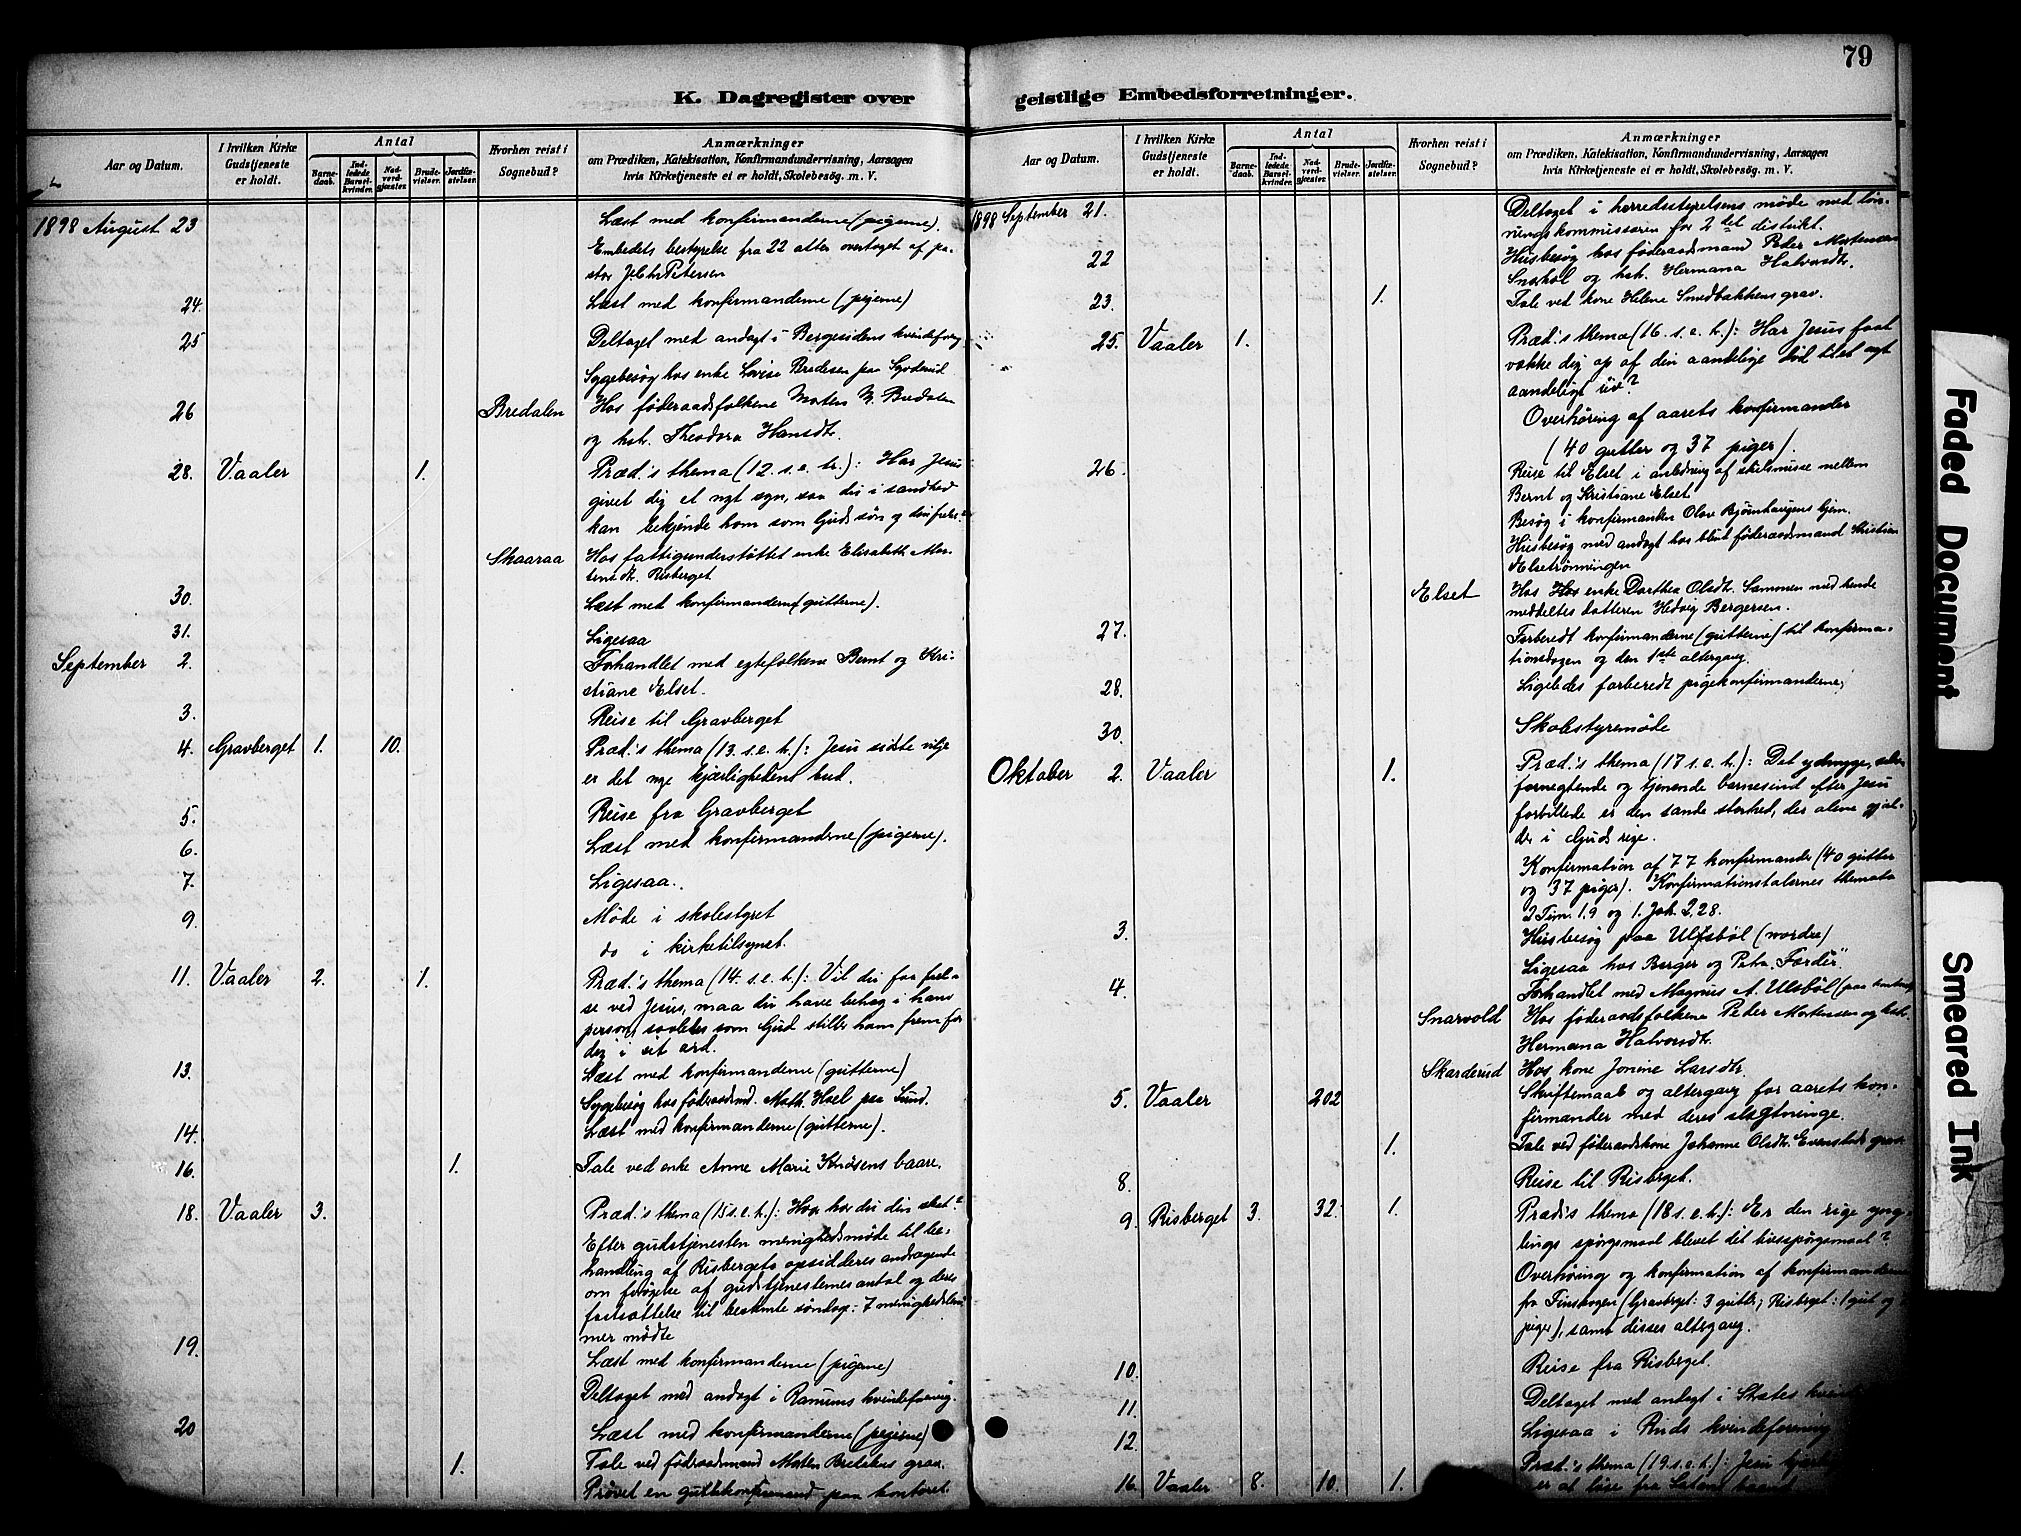 79
K. Dagregister over geistlige Embedsforretninger.
Aar og Datum.
I hvilken Kirke Gudstjeneste er holdt.
Antal
Barnedaab.
Indledede Barselkvinder.
Nadverdgjæster.
Brudevielser.
Jordfæstelser.
Hvorhen reist i Sognebud?
Anmærkninger
om Prædiken, Katekisation, Konfirmandundervisning, Aarsagen
hvis Kirketjeneste ei er holdt, Skolebesøg. m. V.
1898 August 23 Læst med konfirmanderne (pigerne).
Embedets bestyrelse fra 22 atter overtaget af pa-
stor Petersen
24. Læst med konfirmanderne (pigerne)
25 Deltaget med andagt i Bergesidens kvindeforg
Sygebesøg hos enke Lovise Bredesen paa
26 Bredalen Hos føderaadsfolkene Morten M. Bredalen
og hst. Theodora Hansdt.
28. Vaaler 1. Præd.'s thema (12. s. e. tr.): Har Jesus
givet dig et nyt syn, saa du i sandhed
kan bekjende ham som Guds søn og din frelser?
Skaaraa Hos fattigunderstøttet enke Elisabeth Mor-
tensdt. Risberget
30. Læst med konfirmanderne (gutterne).
31. Ligesaa
September 2. Forhandlet med egtefolkene Bernt og Kri-
stiane Elset.
3. Reise til Gravberget
4. Gravberget 1. 10. Præd.'s thema (13. s. e. tr.): Jesu sidste vilje
er det nye kjærlighedens bud.
5. Reise fra Gravberget
6. Læst med konfirmanderne (pigerne).
7. Ligesaa.
9. Møde i skolestyret
do i kirketilsynet.
11. Vaaler 2. 1. Præd.'s thema (14. s. e. tr.): Vil du faa frel-
se ved Jesus, maa du have behag i hans
person, saaledes som Gud stiller ham frem for
dig i sit ord.
13. Læst med konfirmanderne (gutterne)
Sygebesøg hos føderaadsmd. Math. Hoel paa Sund.
14. Læst med konfirmanderne (gutterne).
16. 1. Tale ved enke Anne Marie Knosens baare.
18. Vaaler 3. Præd.'s thema (15 s. e. tr.): Hvor har du din skat?
Efter gudstjenesten menighedsmøde til be-
handling af Risbergets opsidderes andragende
om forøgelse af gudstjenesternes antal og deres
fortsættelse til bestemte søndage: 7 menighedslem-
mer mødte
19. Læst med konfirmanderne (pigerne)
Deltaget med andagt i Ramums kvindeforenig.
20 Læst med konfirmanderne (pigerne)
1. Tale ved føderaadsmand Morten Bredalens grav.
Prøvet en guttekonfirmand paa kontoret.
Aar og Datum.
I hvilken Kirke Gudstjeneste er holdt.
Antal
Barnedaab.
Indledede Barselkvinder.
Nadverdgjæster.
Brudevielser.
Jordfæstelser.
Hvorhen reist i Sognebud?
Anmærkninger
om Prædiken, Katekisation, Konfirmandundervisning, Aarsagen
hvis Kirketjeneste ei er holdt, Skolebesøg. m. V.
1898 September 21. Deltaget i herredsstyrelsens møde med løn-
ningskommissæren for 2det distrikt.
22 Husbesøg hos føderaadsmand Peder Mortensen
og hst. Hermana Halvorsdt.
23. 1. Tale ved kone Helene Smedbakkens grav.
25. Vaaler 1. Præd.'s thema (16. s. e. tr.): Har Jesus faat
vække dig op af din aandelige død til et nyt
aandeligt liv?
Overhøring af aarets konfirmander
(40 gutter og 37 piger).
26. Reise til Elset i anledning af skilsmisse mellem
Bernt og Kristiane Elset
Besøg i konfirmanden Olav Bjørnhaugens hjem.
Husbesøg med andagt hos blind føderaadsmand Kristian
Elsetrønningen
Elset Hos Hos enke Dorthea Olsdt. Sammen med hende
meddeltes datteren Hedvig Bergersen.
27. Forberedt konfirmanderne (gutterne) til konfirma-
tionsdagen og den 1ste altergang.
28. Ligeledes forberedt pigekonfirmanderne;
30. Skolestyremøde
Oktober 2. Vaaler 1. Præd.'s thema (17 s. e. tr.): Det ydmyge, selv-
fornegtende og tjenende barnesind efter Jesu
forbillede er den sande storhed, der alene gjæl-
der i Guds rige.
Konfirmation af 77 konfirmander (40 gutter
og 37 piger). Konfirmationstalernes themata
2 Tim. 1,9 og 1. Joh. 2,28.
3. Husbesøg paa Ulfsbøl (nordre)
Ligesaa hos Berger og Petra "Fordür"
4. Forhandlet med Magnus A. Ulsbøl (paa kontoret)
Snarvold Hos føderaadsfolkene Peder Mortensen og hst.
Hermana Halvorsdt.
Skarderud Hos kone Jonine Larsdt.
5. Vaaler 202 Skriftemaal og altergang for aarets kon-
firmander med deres slægtninge.
1. Tale ved føderaadskone Johanne Olsdt. Evenstads grav
8. Reise til Risberget.
9. Risberget 3. 32. 1. Præd.'s thema (18 s. e. tr.): Er den rige yng-
lings spørgsmaal blevet dit livsspørgsmaal?
Overhøring og konfirmation af konfirmanderne
fra Finskogen (Gravberget: 3 gutter; Risberget: 1 gut og
piger), samt disses altergang.
10. Reise fra Risberget.
11. Deltaget med andagt i Slætes
12. Ligesaa i Ruds kvindeforening
16. Vaaler 8. 10. 1. Præd.'s thema (19. s. e. tr.): Jesu
er at løse fra Satans baand
Faded Document
Smeared Ink